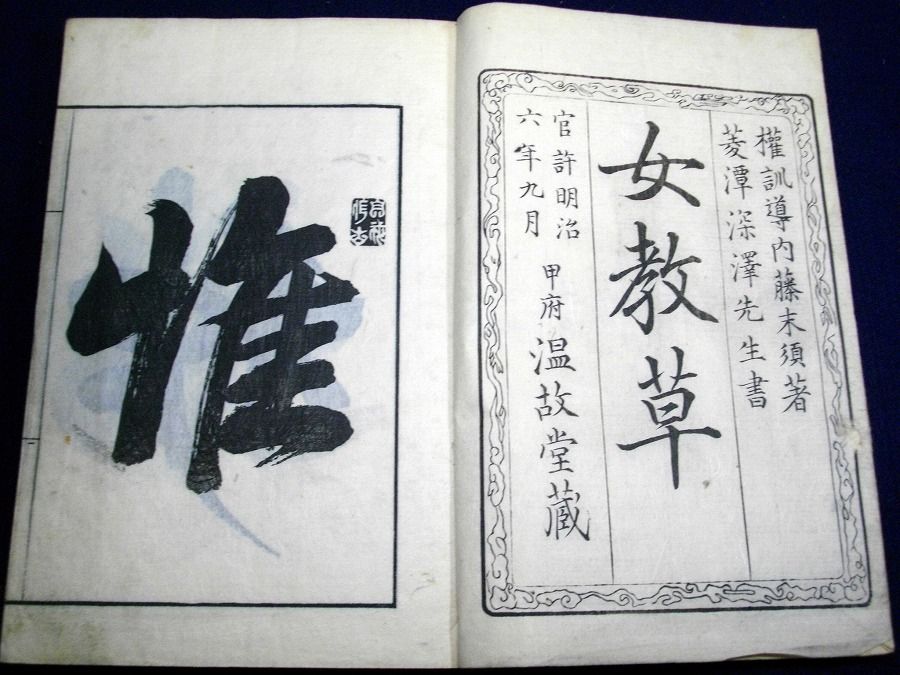 權訓導内藤末須著
菱潭深澤先生書
女教草
官許明治
六年九月
甲府 温故堂蔵
惟